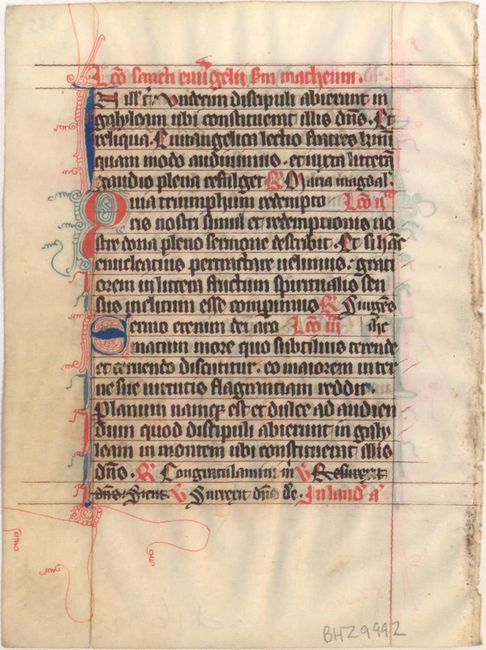 Lcō sancti euāgelii sm matheum.
In ill' t. Undecim discipuli abierunt in
galyleam ubi constituerat illis dn̄s. Et
reliqua. Euuangelica lectio fratres k̄mi
quam modo audiuimus. et iuxta litterā
gaudio plena refulget R Maria magdal'.
Quia triumphum redempto Lcō ii
ris nostri simul et redemptionis no
stre dona pleno sermone describit. Et si hāc
enucleatius pertractare uelimus: grati
orem in littera fructum spiritualis sen
sus inclitum esse comperimus R Surgēs
Sermo etenim dei aro Lcō iii the
matum more quo subtilius terendo
et cernendo discutitur. eo maiorem inter
ne sue uirtutis flagrantiam reddit.
Planum namq; est et dulce ad audien
dum quod discipuli abierunt in galy
leam in montem ubi constituerat illis
dn̄s. R Congratulamini ū V Resurrexit
dn̄s. sicut V Surrexit dn̄s de. In laud' aͣ
BHZ9992